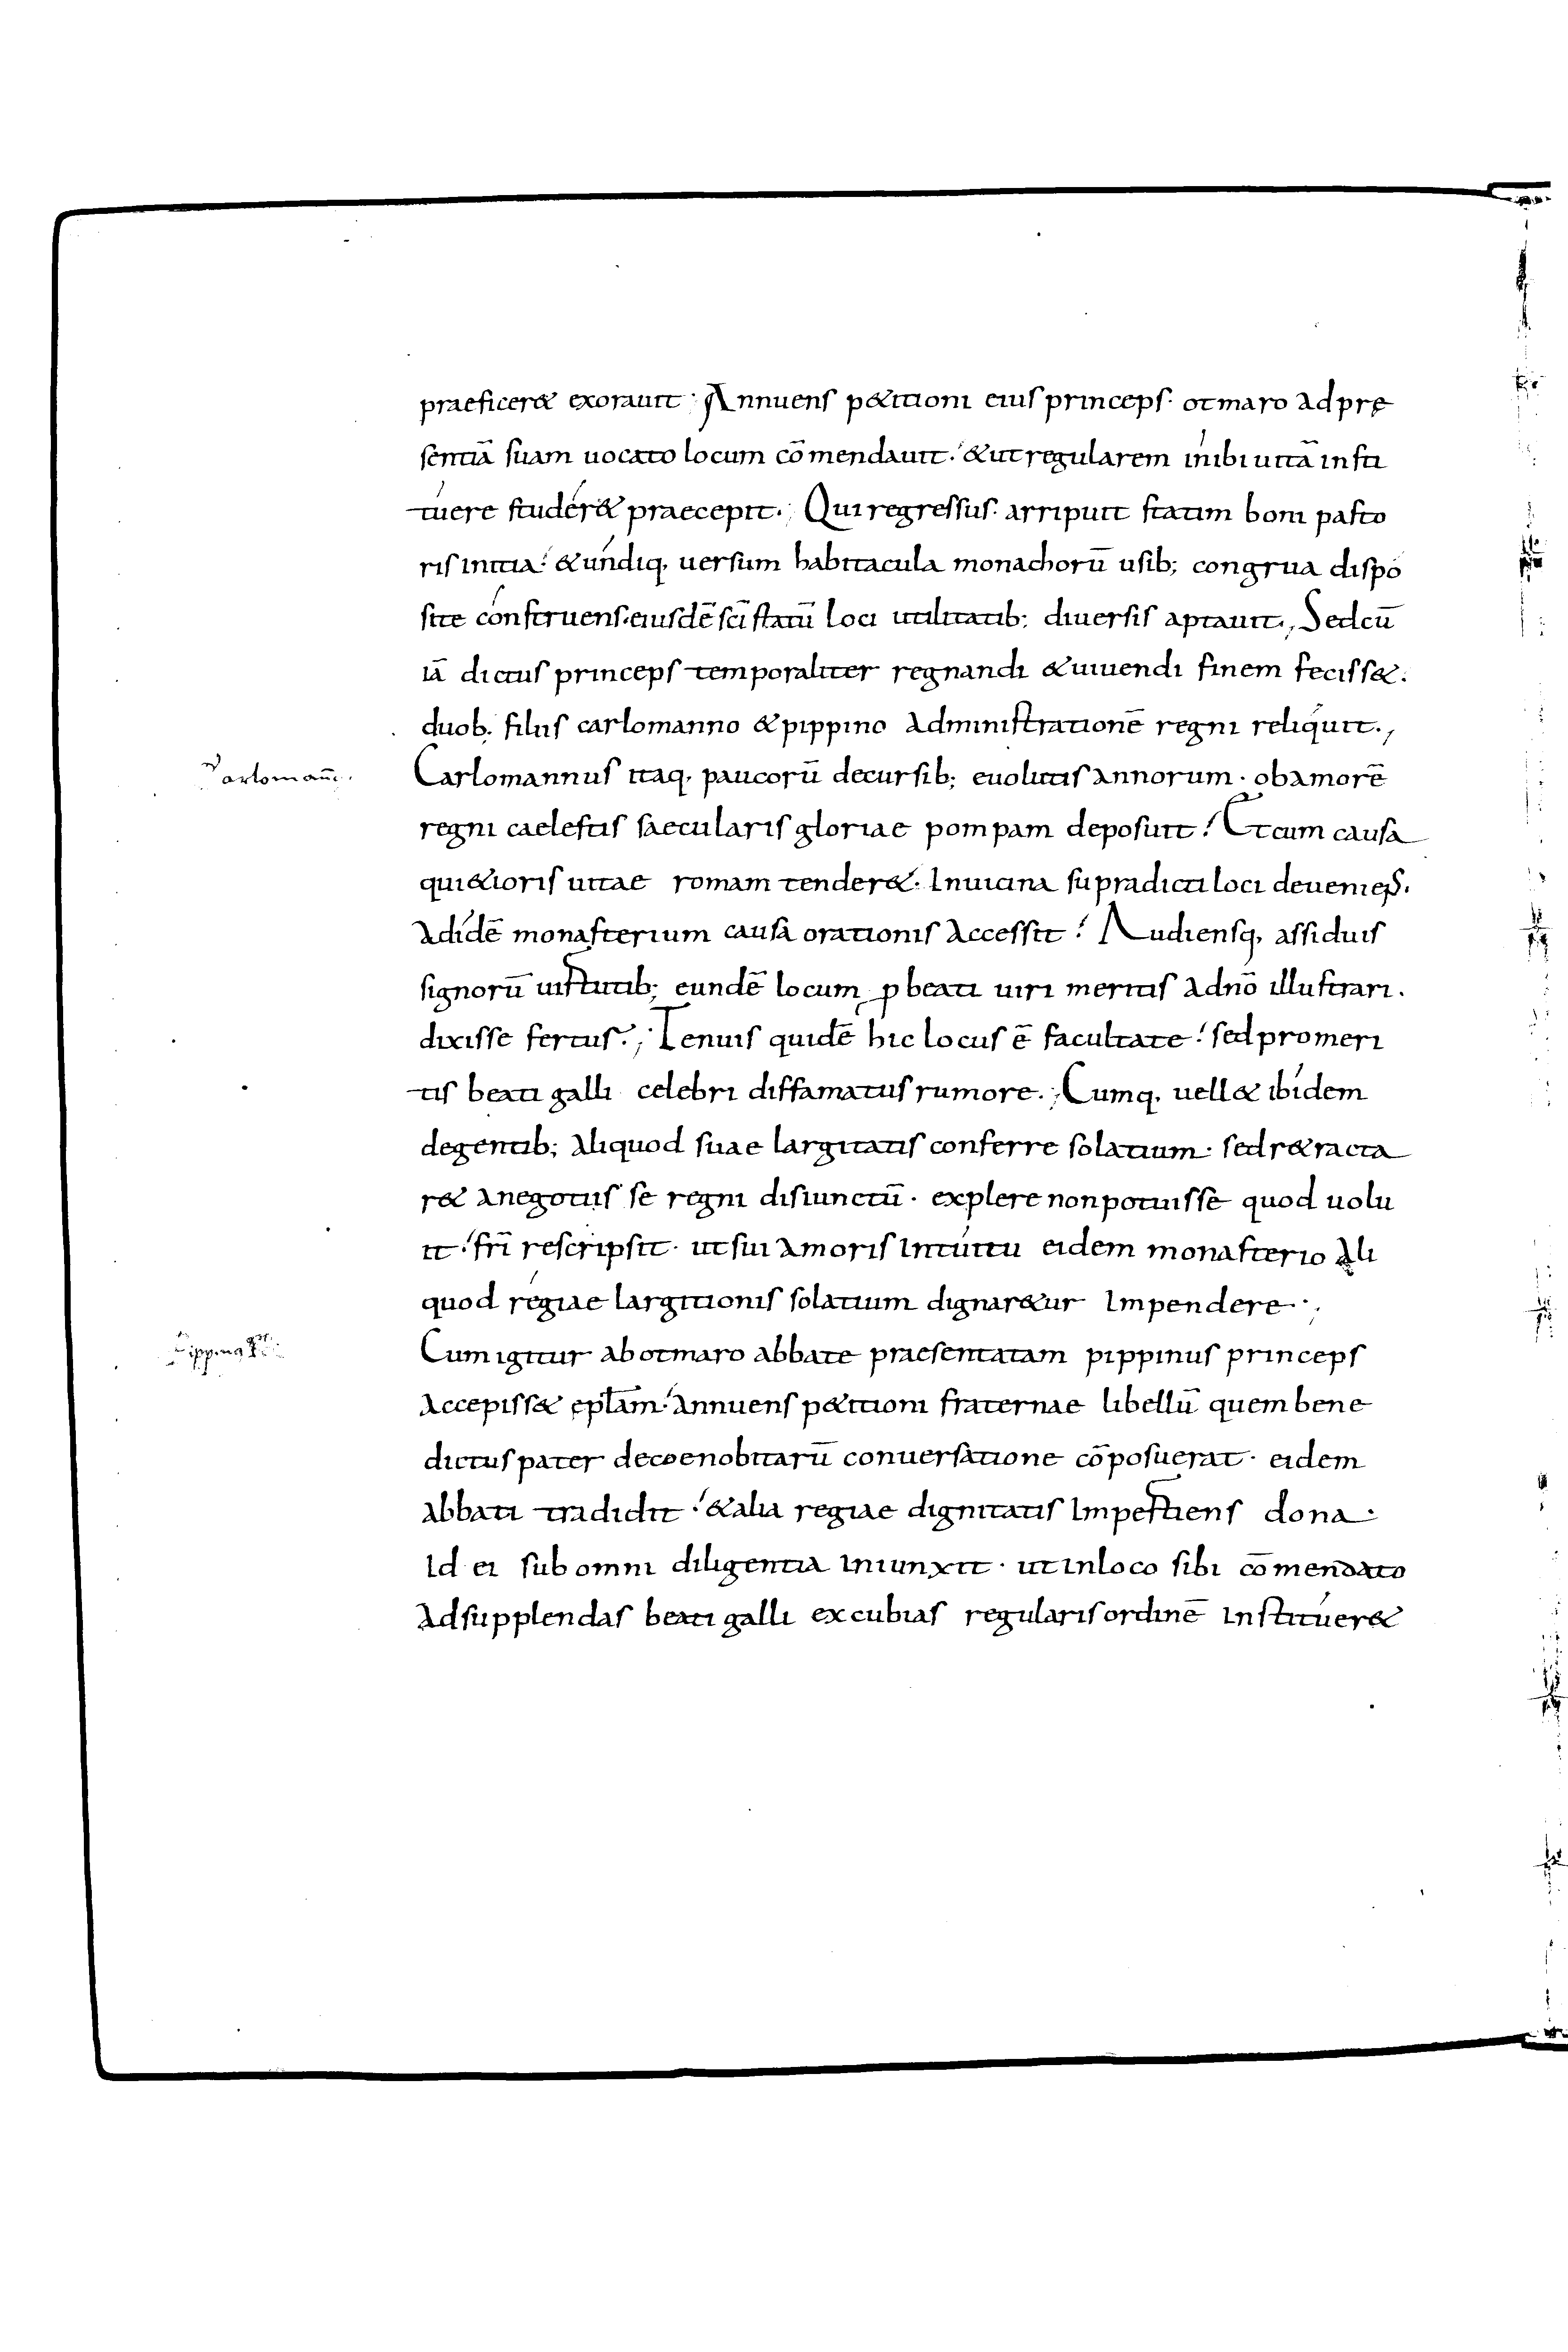 praeficer& exorauit· Annuens p&itioni eius princeps· otmaro ad prę
sentiā suam uocato locum cōmendauit· & ut regularem inibi uitā insti
tuere studer& praecepit·, Qui regressus· arripuit statim boni pasto
ris initia· & undiq, uersum habitacula monachorū usib; congrua dispo
site construens· eiusdē scī statū loci utilitatib; diuersis aptauit·, Sed cū
iā dictus princeps temporaliter regnandi & uiuendi finem feciss&·
duob, filiis carlomanno & pippino administrationē regni reliquit·,
Carlomann,
Carlomannus itaq, paucorū decursib; euolutis annorum· ob amorē
regni caelestis saecularis gloriae pompam deposuit· Et cum causa
qui&ioris uitae romam tender&· In uicina supradicti loci deueniens·
ad idē monasterium causa orationis accessit· Audiensq, assiduis
signorū uirtutib; eundē locum p beati uiri meritis a dnō illustrari·
dixisse fertur·, Tenuis quidē hic locus ē facultate· sed pro meri
tis beati galli celebri diffamatus rumore·, Cumq, uell& ibidem
degentib; aliquod suae largitatis conferre solatium· sed r&racta
r& a negotiis se regni disiunctū· explere non potuisse quod uolu
it· frī rescripsit· ut sui amoris intuitu eidem monasterio ali
quod regiae largitionis solatium dignar&ur impendere·,
Pippinus
Cum igitur ab otmaro abbate praesentatam pippinus princeps
accepiss& eplam· annuens p&itioni fraternae libellū quem bene
dictus pater de coenobitarū conuersatione cōposuerat· eidem
abbati tradidit· & alia regiae dignitatis impertiens dona·
Id ei sub omni diligentia iniunxit· ut in loco sibi cōmendato
ad supplendas beati galli excubias regularis ordinē instituer&